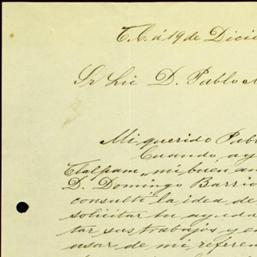 T. C. á 19 de Dici
Sr Lic D. Pablo
Mi querido Pab
Cuando ay
Tlalpam, mi buen am
D. Domingo Barrio
consultó la idea de
solicitar tu ayuda
tar sus trabajos y e
usar de mi referen